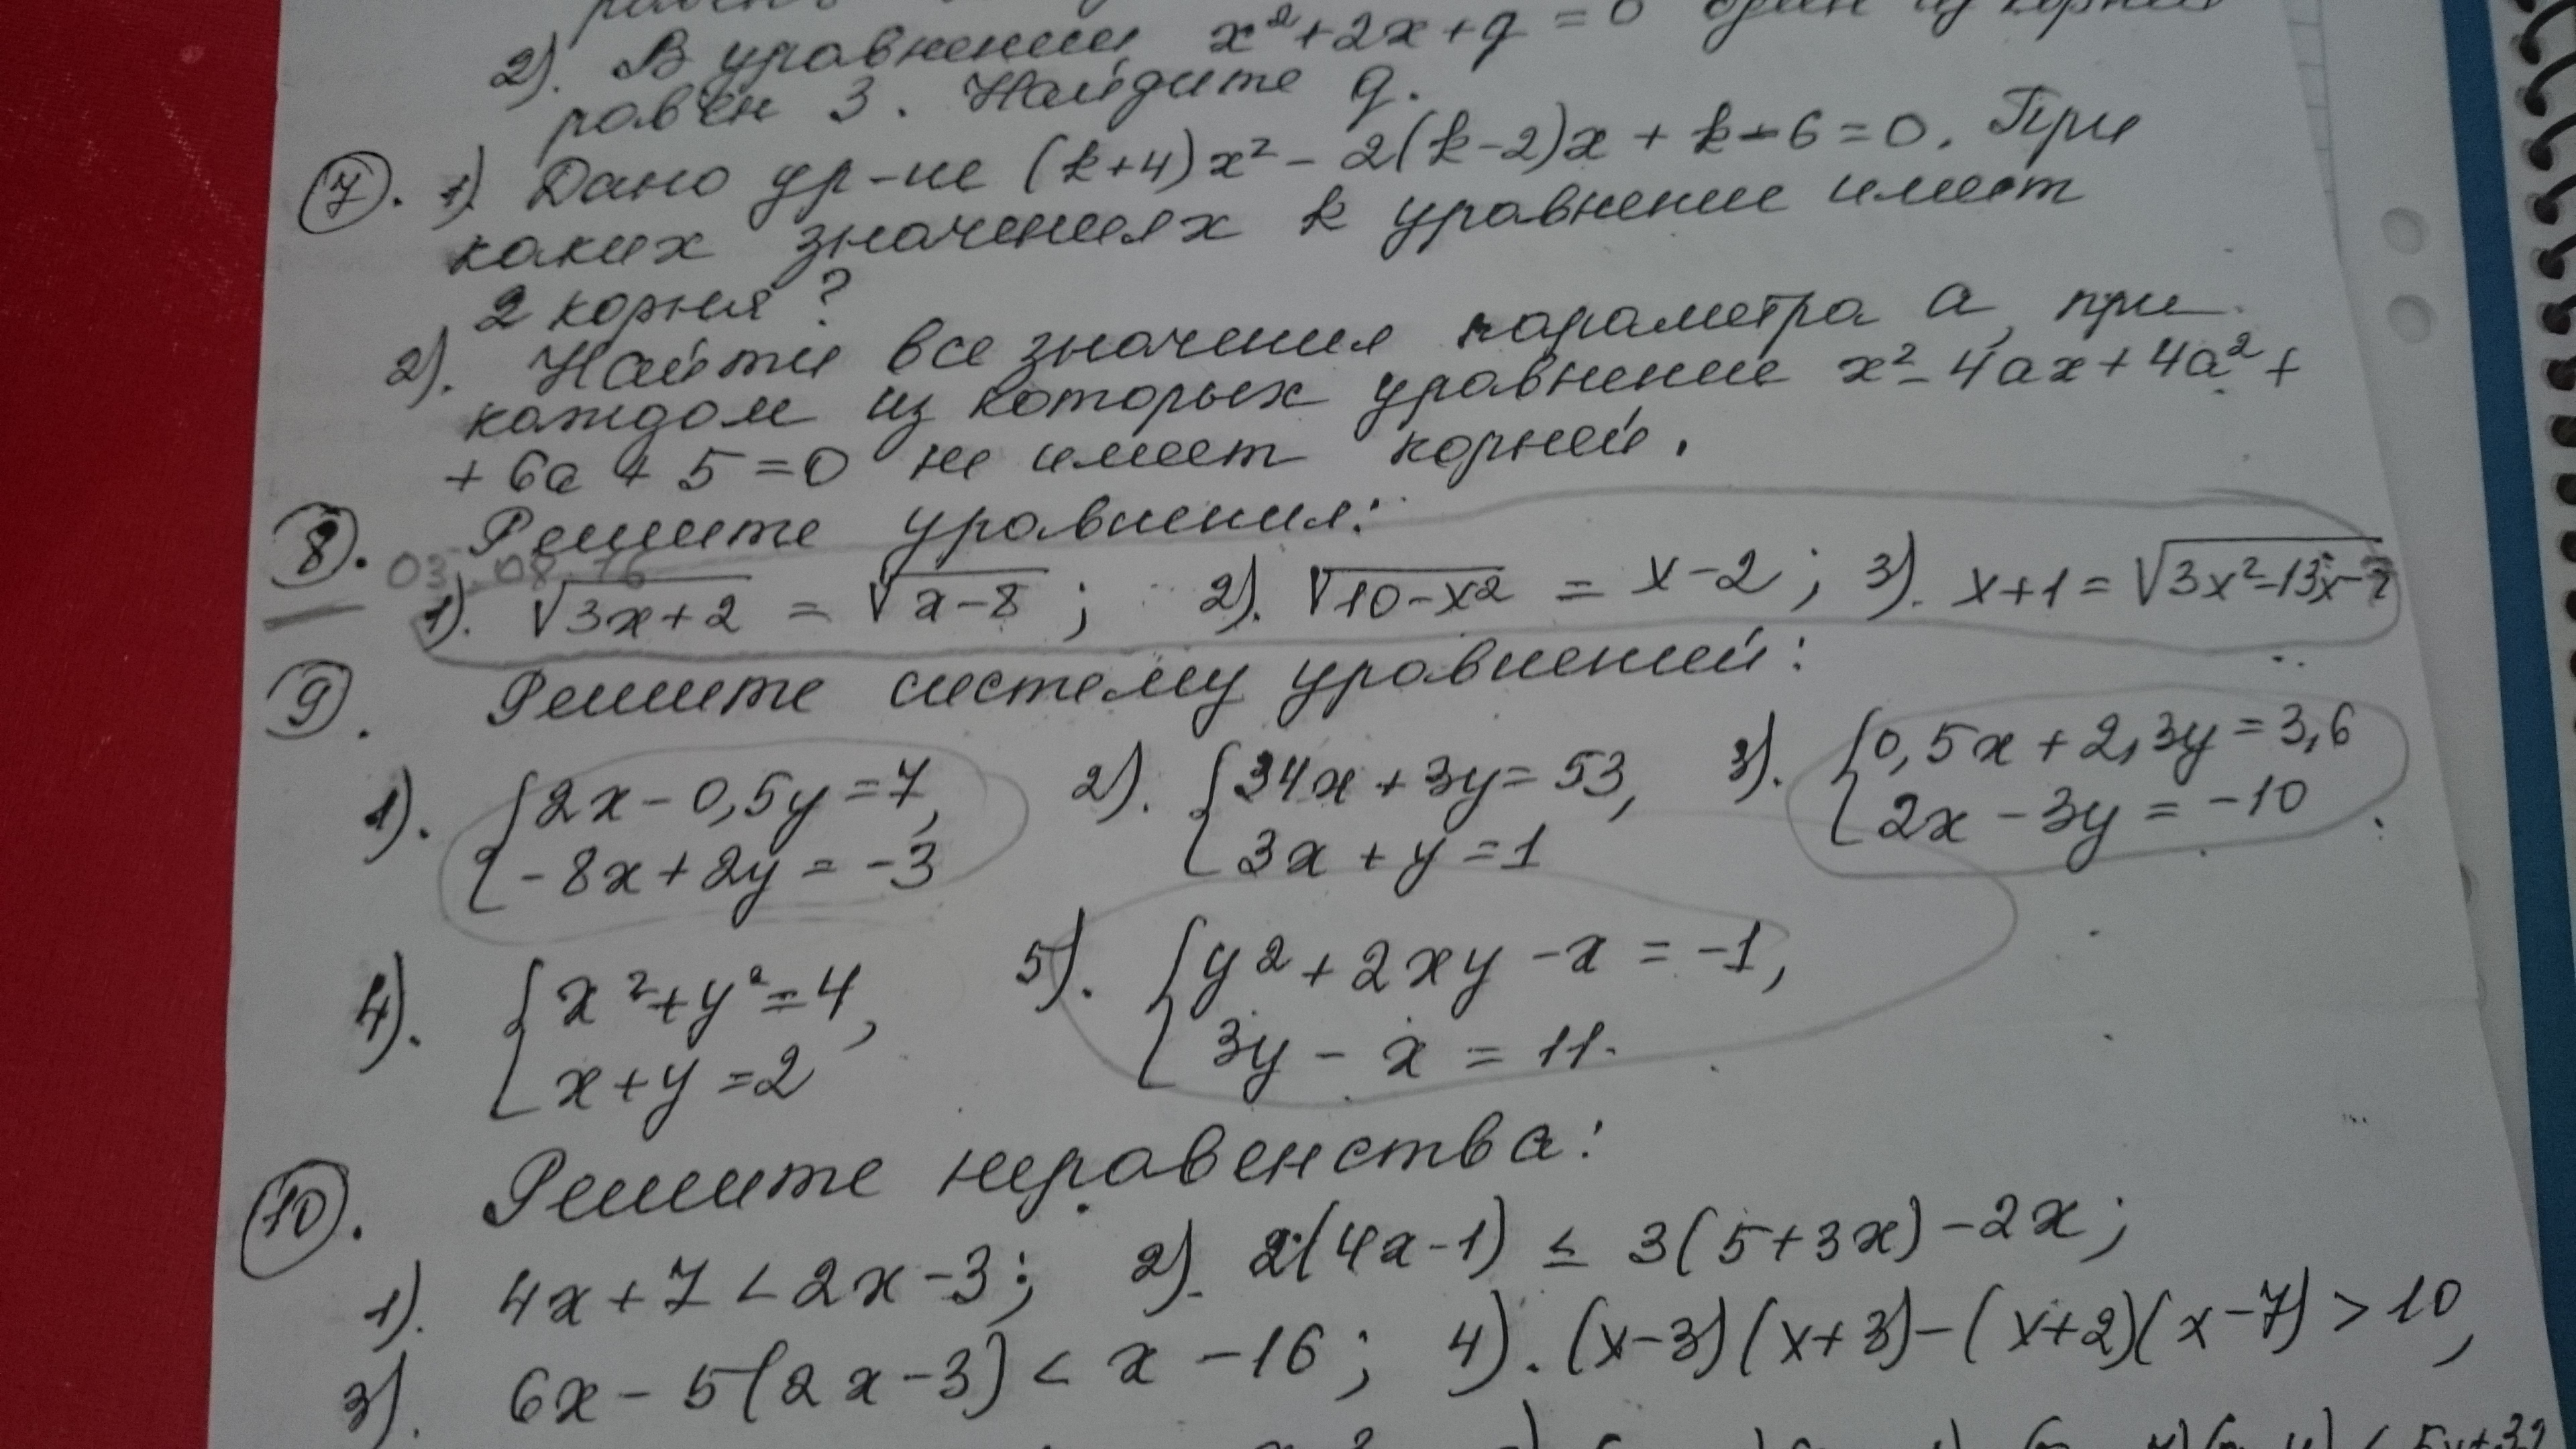 2). В уравнении x²+2x+q=0 один из корней
равен 3. Найдите q.
7. 1) Дано ур-ие (k+4)x² - 2(k-2)x + k-6=0. При
каких значениях k уравнение имеет
2 корня?
2). Найти все значения параметра a, при
каждом из которых уравнение x²-4ax+4a²+
+6a+5=0 не имеет корней.
8. Решите уравнения:
03.08.16
1). √3x+2 = √x-8; 2). √10-x² = x-2; 3). x+1=√3x²-13x-
9. Решите систему уравнений:
1). {2x-0,5y=7, 2). {34x+3y=53, 3). {0,5x+2,3y=3,6
-8x+2y=-3 3x+y=1 2x-3y=-10
4). {x²+y²=4, 5). {y²+2xy-x=-1,
x+y=2 3y-x=11.
10. Решите неравенства:
1). 4x+7<2x-3; 2). 2(4x-1) ≤ 3(5+3x)-2x;
3). 6x-5(2x-3)<x-16; 4). (x-3)(x+3)-(x+2)(x-7)>10,